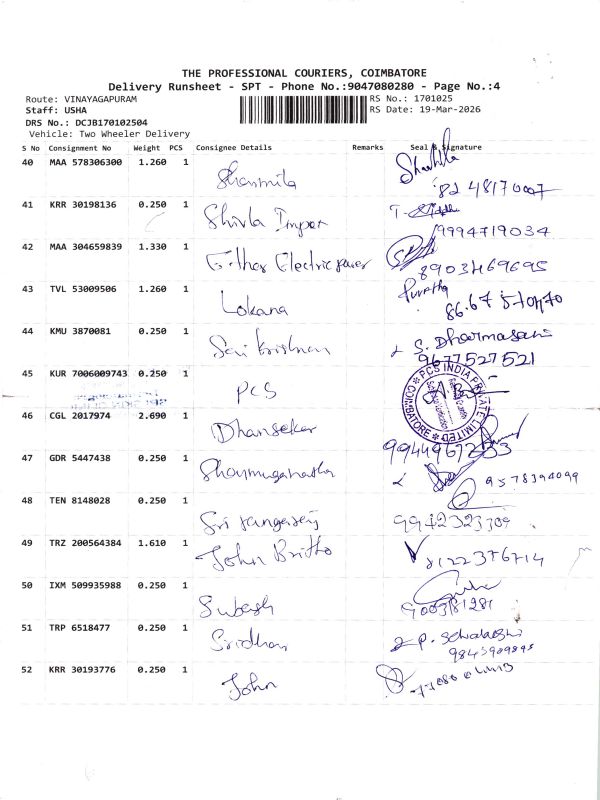 THE PROFESSIONAL COURIERS, COIMBATORE
Delivery Runsheet - SPT - Phone No.:9047080280 - Page No.:4
Route: VINAYAGAPURAM
RS No.: 1701025
Staff: USHA
RS Date: 19-Mar-2026
DRS No.: DCJB170102504
Vehicle: Two Wheeler Delivery
S No Consignment No Weight PCS Consignee Details Remarks Seal & Signature
40 MAA 578306300 1.260 1
Sharmila
82 48170007
41 KRR 30198136 0.250 1
Shivla Impex
9994719034
42 MAA 304659839 1.330 1
Electric
8903469695
43 TVL 53009506 1.260 1
Lokana
44 KMU 3870081 0.250 1
Sai Krishnan
S. Dharmasani
9677527521
45 KUR 7006009743 0.250 1
PCS
PCS INDIA PRIVATE LIMITED
COIMBATORE
46 CGL 2017974 2.690 1
Dhansekar
47 GDR 5447438 0.250 1
9578394099
48 TEN 8148028 0.250 1
Sri
9942323309
49 TRZ 200564384 1.610 1
John Britto
8122376714
50 IXM 509935988 0.250 1
Subash
9003181281
51 TRP 6518477 0.250 1
Sridhar
9843909895
52 KRR 30193776 0.250 1
John